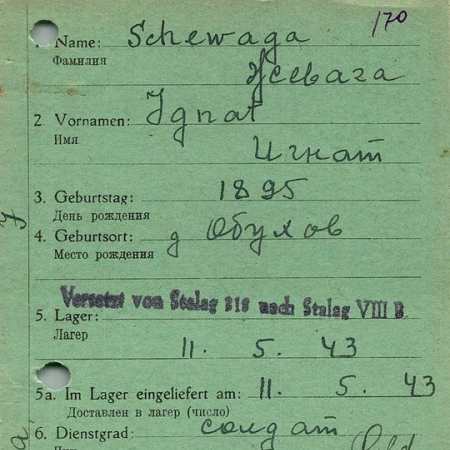 170
1. Name: Schewaga
Фамилия Жевага
2. Vornamen: Ignat
Имя Игнат
3. Geburtstag: 1895
День рождения
4. Geburtsort: д Обухов
Место рождения
Versetzt von Stalag 318 nach Stalag VIII B
5. Lager:
Лагер 11. 5. 43
5a. Im Lager eingeliefert am: 11. 5. 43
Доставлен в лагер (число)
6. Dienstgrad: солдат